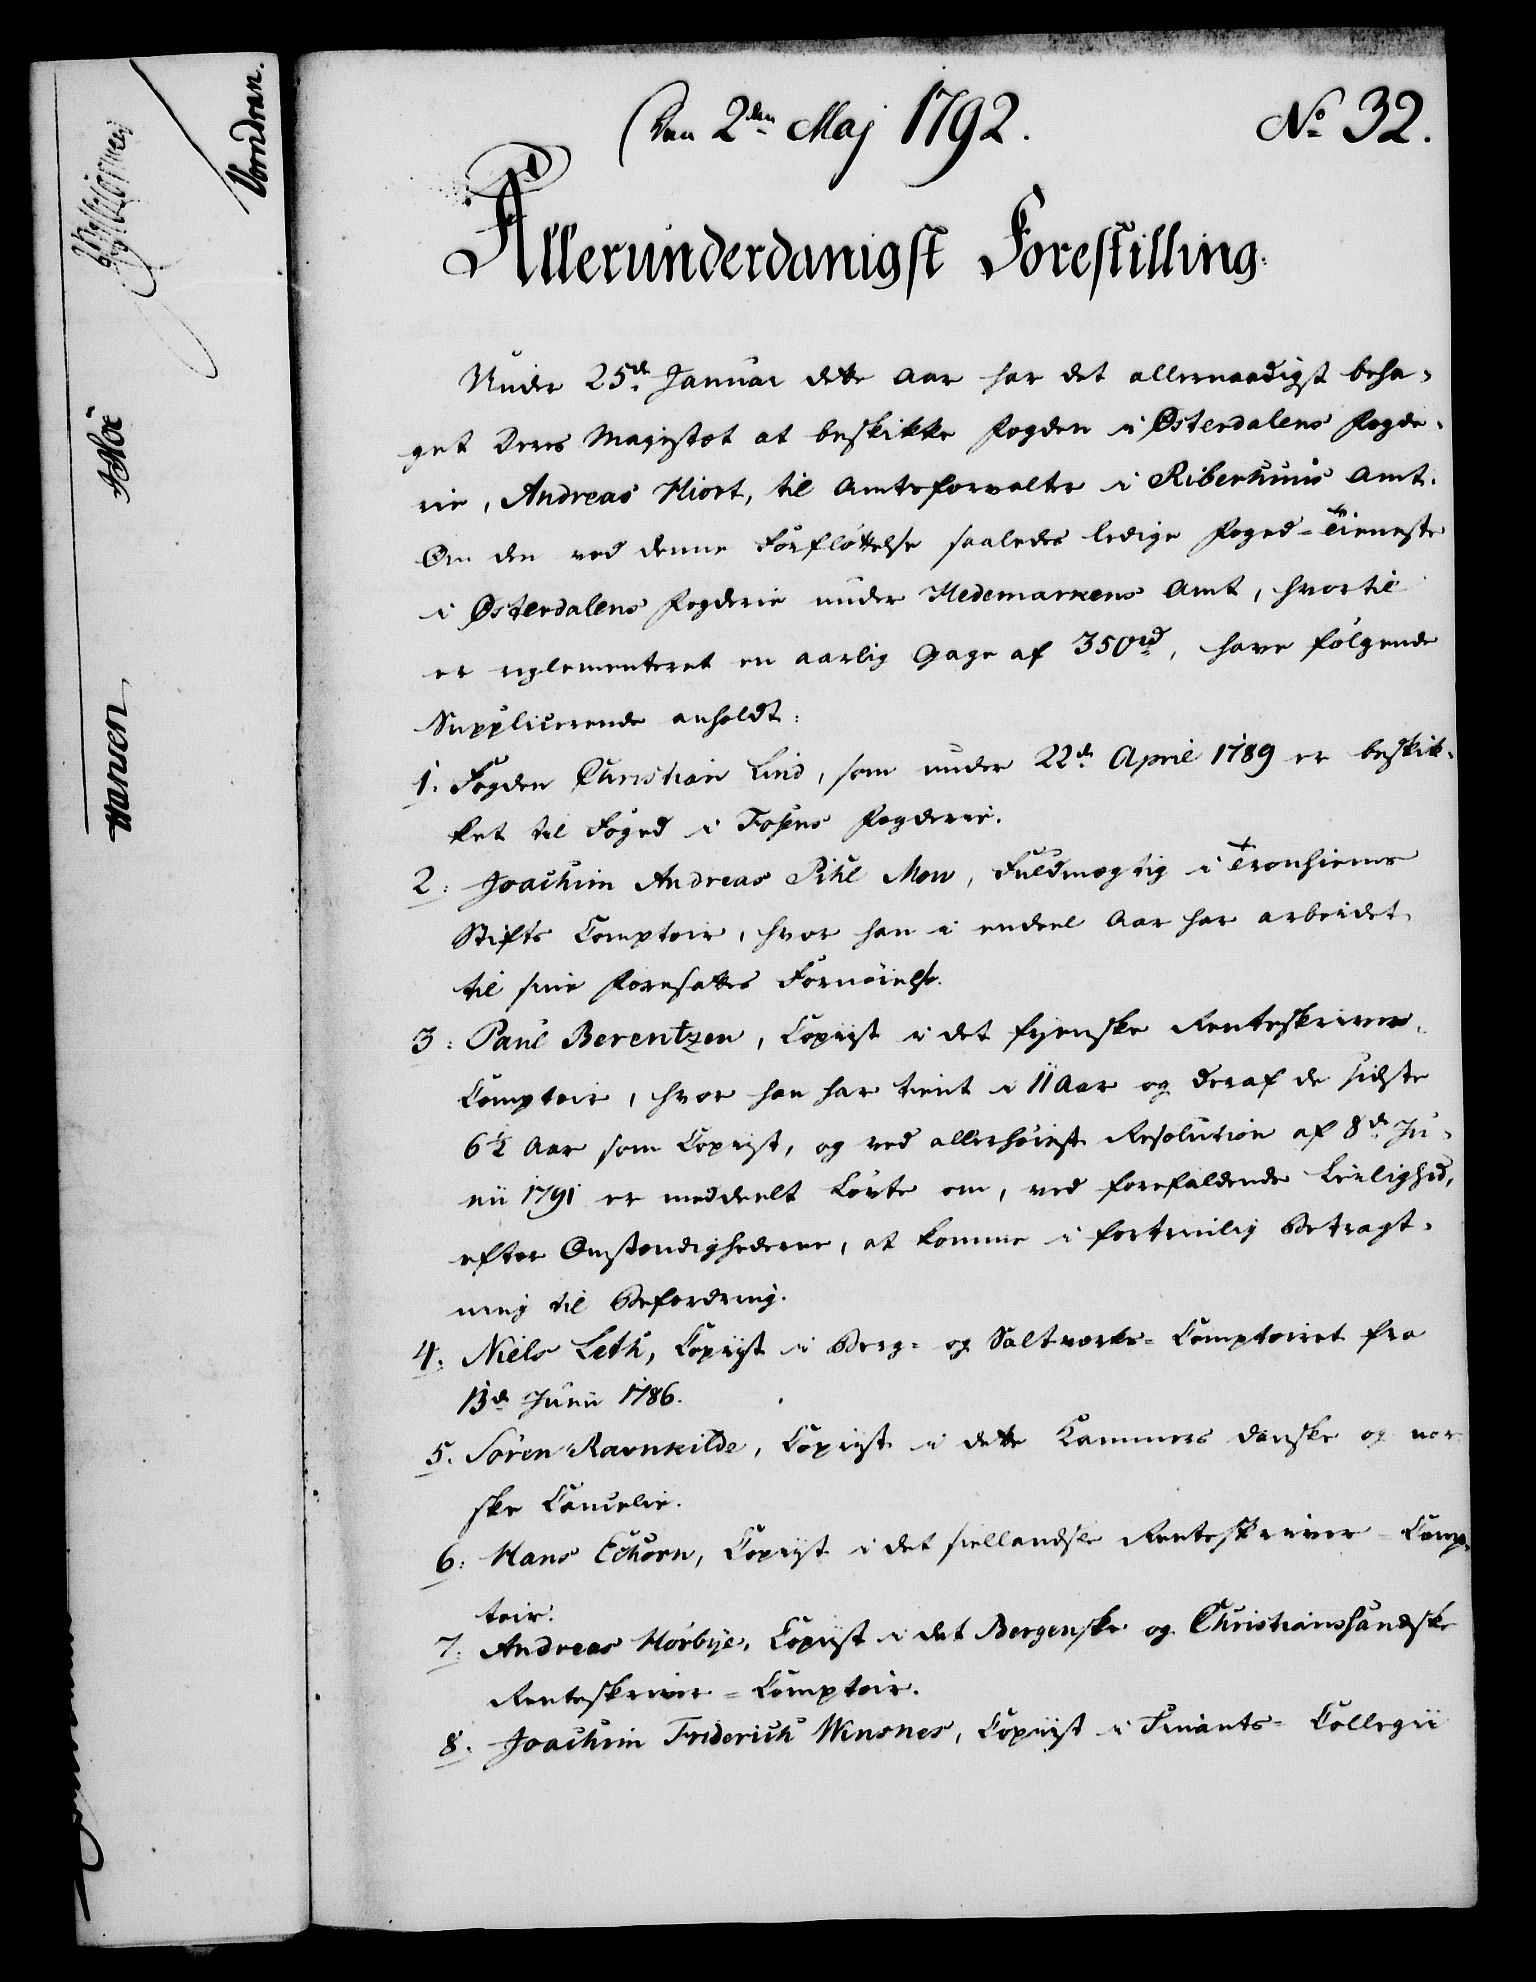 Den 2den Maj 1792.
No 32.
Allerunderdanigst Forestilling.
Under 25de Januar dette Aar har det allernaadigst beha-
get Deres Majestæt at beskikke Fogden i Østerdalens Fogde-
rie, Andreas Hiort, til Amtsforvalter i Riberhuus Amt.
Om den ved denne Forfløttelse saaledes ledige Foged-Tieneste
i Østerdalens Fogderie under Hedemarkens Amt, hvortil
er reglementeret en aarlig Gage af 350rd, have følgende
Supplicerende anholdt:
1. Fogden Christian Lind, som under 22de April 1789 er beskik-
ket til Foged i Fosens Fogderie.
2: Joachim Andreas Pihl Mow, Fuldmægtig i Tronhiems
Stifts Comptoir, hvor han i endeel Aar har arbeidet
til sine Foresattes Fornøielse.
3: Paul Berentzen, Copiist i det fyenske Renteskriver-
Comptoir, hvor han har tient i 11 Aar og deraf de sidste
6½ Aar som Copiist, og ved allerhøieste Resolution af 8de Ju-
nii 1791 er meddeelt Løvte om, ved forefaldende Leilighed,
efter Omstændighederne, at komme i fortrinlig Betragt-
ning til Befordring.
4. Niels Leth, Copiist i Berg- og Saltverks-Comptoiret fra
13de Junii 1786.
5. Søren Ravnkilde, Copiist i dette Kammers danske og nor
ske Cancelie.
6: Hans Echorn, Copiist i det siellandske Renteskriver-Comp-
toir.
7. Andreas Hørbye, Copiist i det Bergenske og Christianssandske
Renteskriver-Comptoir.
8. Joachim Friderich Wensnes, Copiist i Finants-Collegii
Vorndran.
Hansen